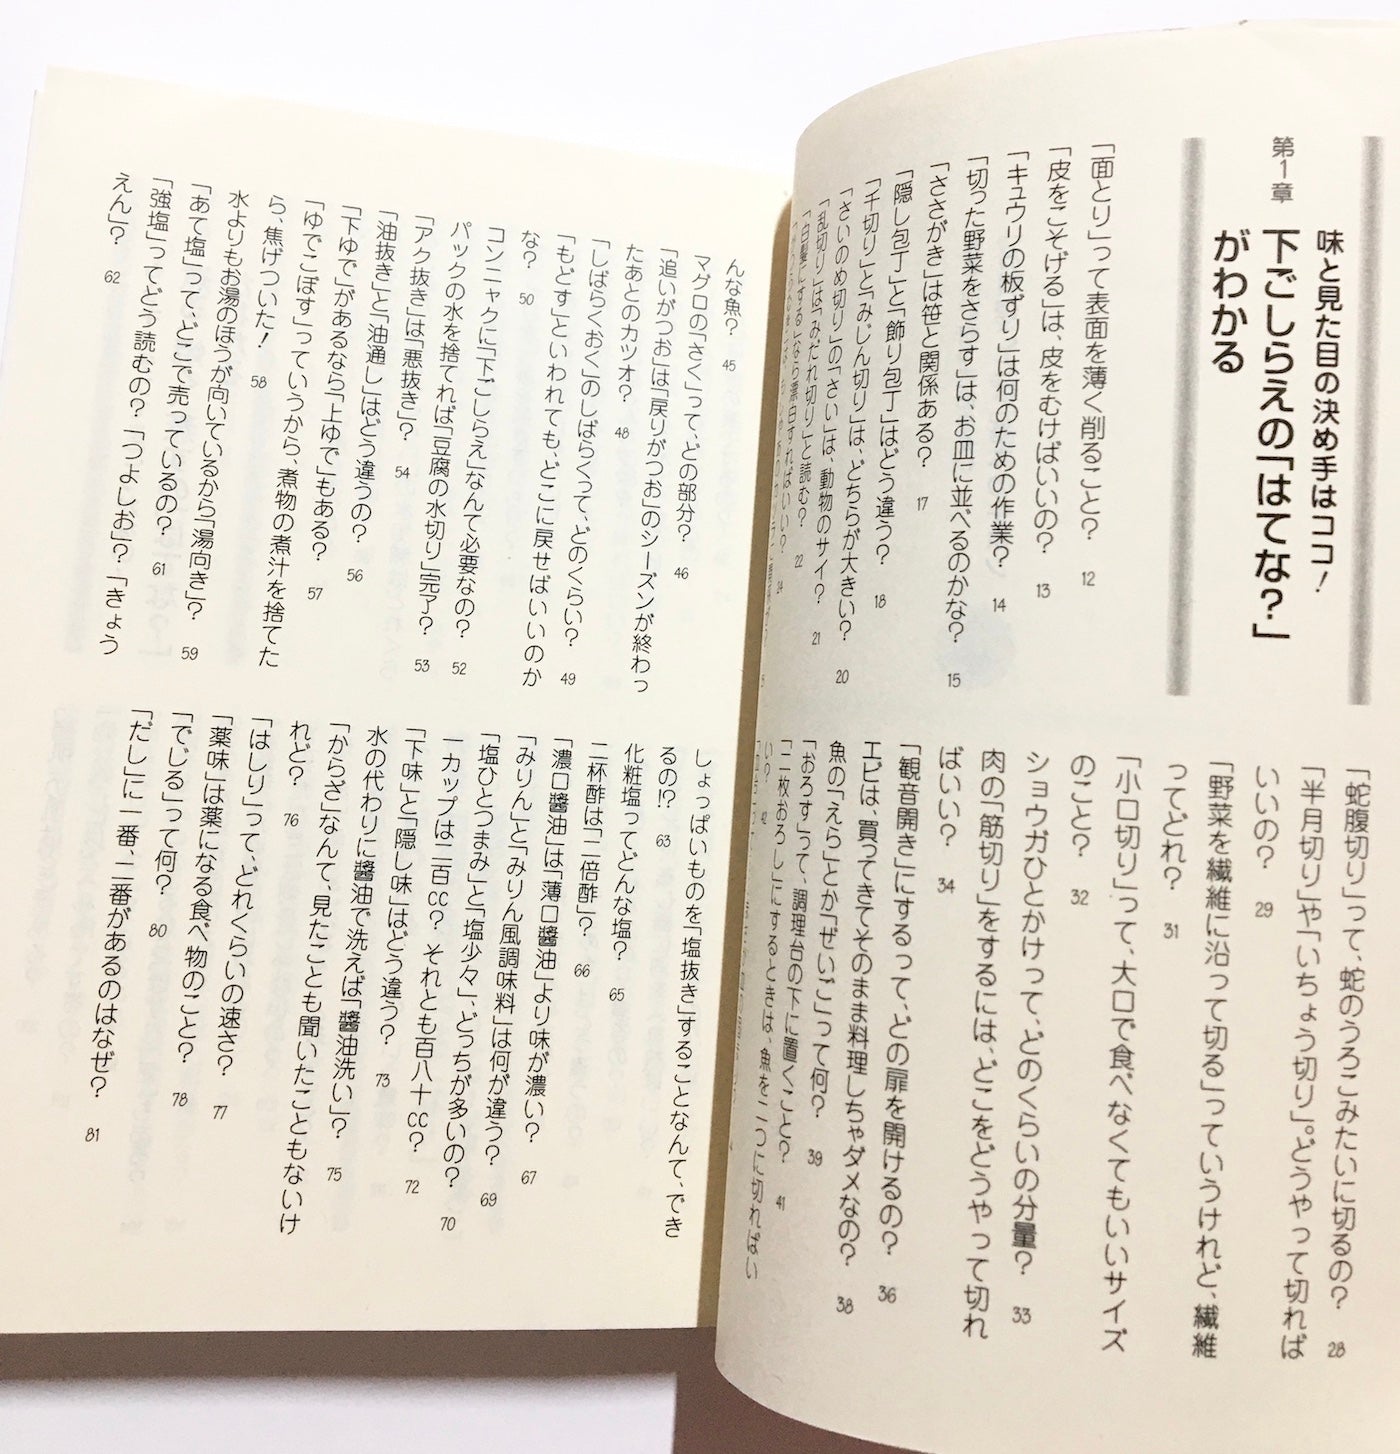 第1章
味と見た目の決め手はココ！
下ごしらえの「はてな？」
がわかる
「面とり」って表面を薄く削ること？ 12
「皮をこそげる」は、皮をむけばいいの？ 13
「キュウリの板ずり」は何のための作業？ 14
「切った野菜をさらす」は、お皿に並べるのかな？ 15
「ささがき」は笹と関係ある？ 17
「隠し包丁」と「飾り包丁」はどう違う？ 18
「千切り」と「みじん切り」は、どちらが大きい？ 20
「さいのめ切り」の「さい」は、動物のサイ？ 21
「乱切り」は「みだれ切り」と読む？ 22
「白髪にする」なら漂白すればいい？ 24
「蛇腹切り」って、蛇のうろこみたいに切るの？ 28
「半月切り」や「いちょう切り」。どうやって切れば
いいの？ 29
「野菜を繊維に沿って切る」っていうけれど、繊維
ってどれ？ 31
「小口切り」って、大口で食べなくてもいいサイズ
のこと？ 32
ショウガひとかけって、どのくらいの分量？ 33
肉の「筋切り」をするには、どこをどうやって切れ
ばいい？ 34
「観音開き」にするって、どの扉を開けるの？ 36
エビは、買ってきてそのまま料理しちゃダメなの？ 38
魚の「えら」とか「ぜいご」って何？ 39
「おろす」って、調理台の下に置くこと？ 41
「二枚おろし」にするときは、魚を二つに切ればい
い？ 42
んな魚？ 45
マグロの「さく」って、どの部分？ 46
「追いがつお」は「戻りがつお」のシーズンが終わっ
たあとのカツオ？ 48
「しばらくおく」のしばらくって、どのくらい？ 49
「もどす」といわれても、どこに戻せばいいのか
な？ 50
コンニャクに「下ごしらえ」なんて必要なの？ 52
パックの水を捨てれば「豆腐の水切り」完了？ 53
「アク抜き」は「悪抜き」？ 54
「油抜き」と「油通し」はどう違うの？ 56
「下ゆで」があるなら「上ゆで」もある？ 57
「ゆでこぼす」っていうから、煮物の煮汁を捨てた
ら、焦げついた！ 58
水よりもお湯のほうが向いているから「湯向き」？ 59
「あて塩」って、どこで売っているの？ 61
「強塩」ってどう読むの？「つよしお」？「きょう
えん」？ 62
しょっぱいものを「塩抜き」することなんて、でき
るの!? 63
化粧塩ってどんな塩？ 65
二杯酢は「二倍酢」？ 66
「濃口醬油」は「薄口醬油」より味が濃い？ 67
「みりん」と「みりん風調味料」は何が違う？ 69
「塩ひとつまみ」と「塩少々」、どっちが多いの？ 70
一カップは二百cc？ それとも百八十cc？ 72
「下味」と「隠し味」はどう違う？ 73
水の代わりに醬油で洗えば「醬油洗い」？ 75
「からざ」なんて、見たことも聞いたこともないけ
れど？ 76
「はしり」って、どれくらいの速さ？ 77
「薬味」は薬になる食べ物のこと？ 78
「でじる」って何？ 80
「だし」に一番、二番があるのはなぜ？ 81